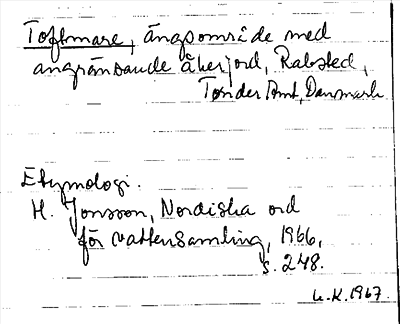 Toftmare, ängsområde med
angränsande åkerjord, Rabsted,
Tønder Amt, Danmark
Etymologi.
H. Jonsson, Nordiska ord
för vattensamling, 1966,
s. 248.
L.K. 1967.